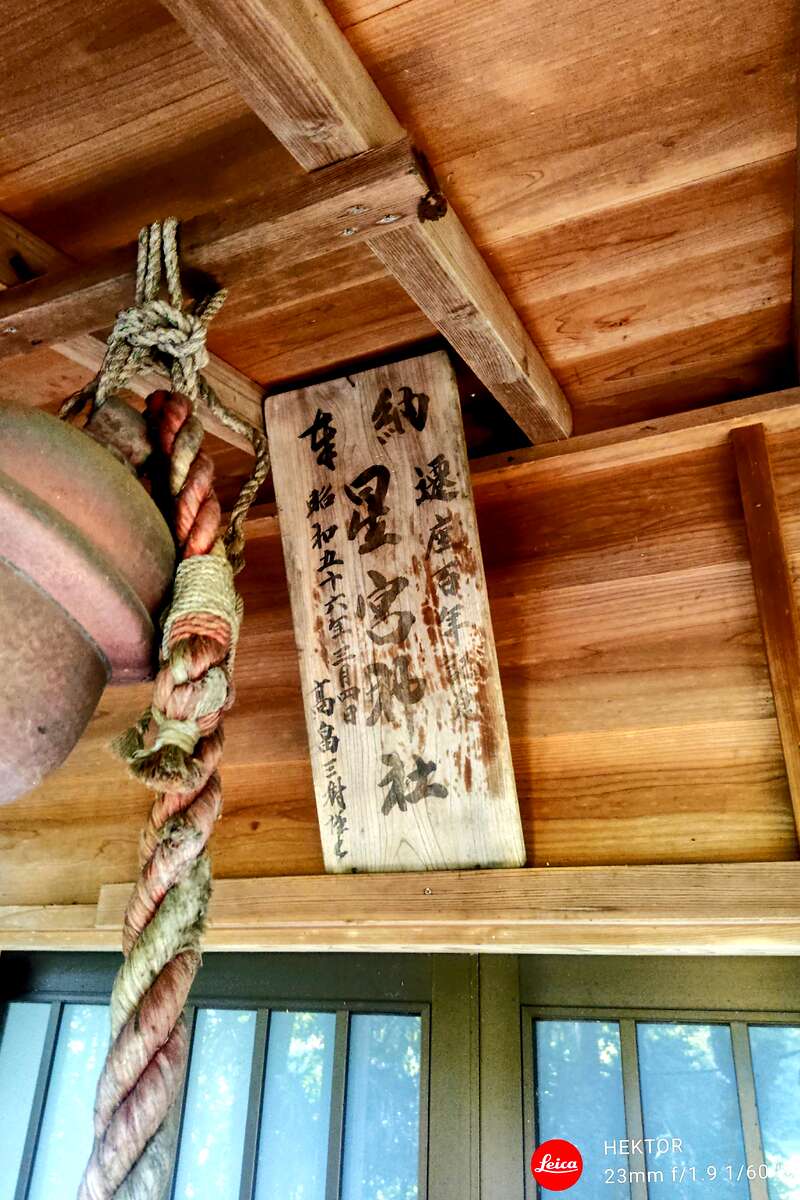 奉納
遷座百年記念
星宮神社
昭和五十六年三月四日
高畠三
Leica
HEKTOR
23mm f/1.9 1/60